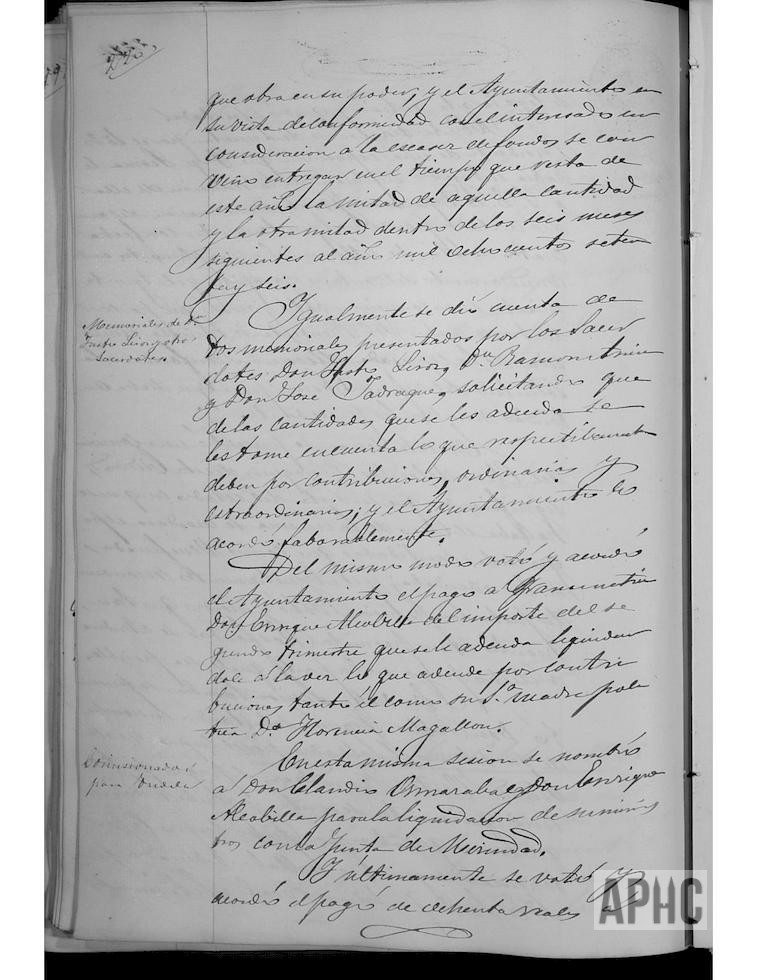 que obra en su poder, y el Ayuntamiento en
su vista de conformidad con el interesado en
consideracion a la escasez de fondos se con
vino entregar en el tiempo que resta de
este año la mitad de aquella cantidad
y la otra mitad dentro de los seis meses
siguientes al año mil ochocientos seten
ta y seis.
Memoriales de Dn
Justo y otros
Sacerdotes
Igualmente se dió cuenta de
tos memoriales presentados por los Sacer
dotes Don Justo Dn Ramon
y Don Jose Jadraque, solicitando que
de las cantidades que se les adeuda se
les tome en cuenta lo que respectibamente
deben por contribuciones, ordinarias y
estraordinarias; y el Ayuntamiento lo
acordó faborablemente.
Del mismo modo votó y acordó
el Ayuntamiento el pago a
Don Enrique Alcobilla del importe del se
gundo trimestre que se le adeuda liquidan
dole á la vez lo que adeude por contri
buciones tanto él como su Sa madre poli
tica Da Florencia Magallon.
Comisionados
para
En esta misma sesion se nombró
á Don Claudio y Don Enrique
Alcobilla para la liquidacion de suminis
tros con la Junta de Merindad.
Y últimamente se votó y
acordó el pago de ochenta reales a
APHC